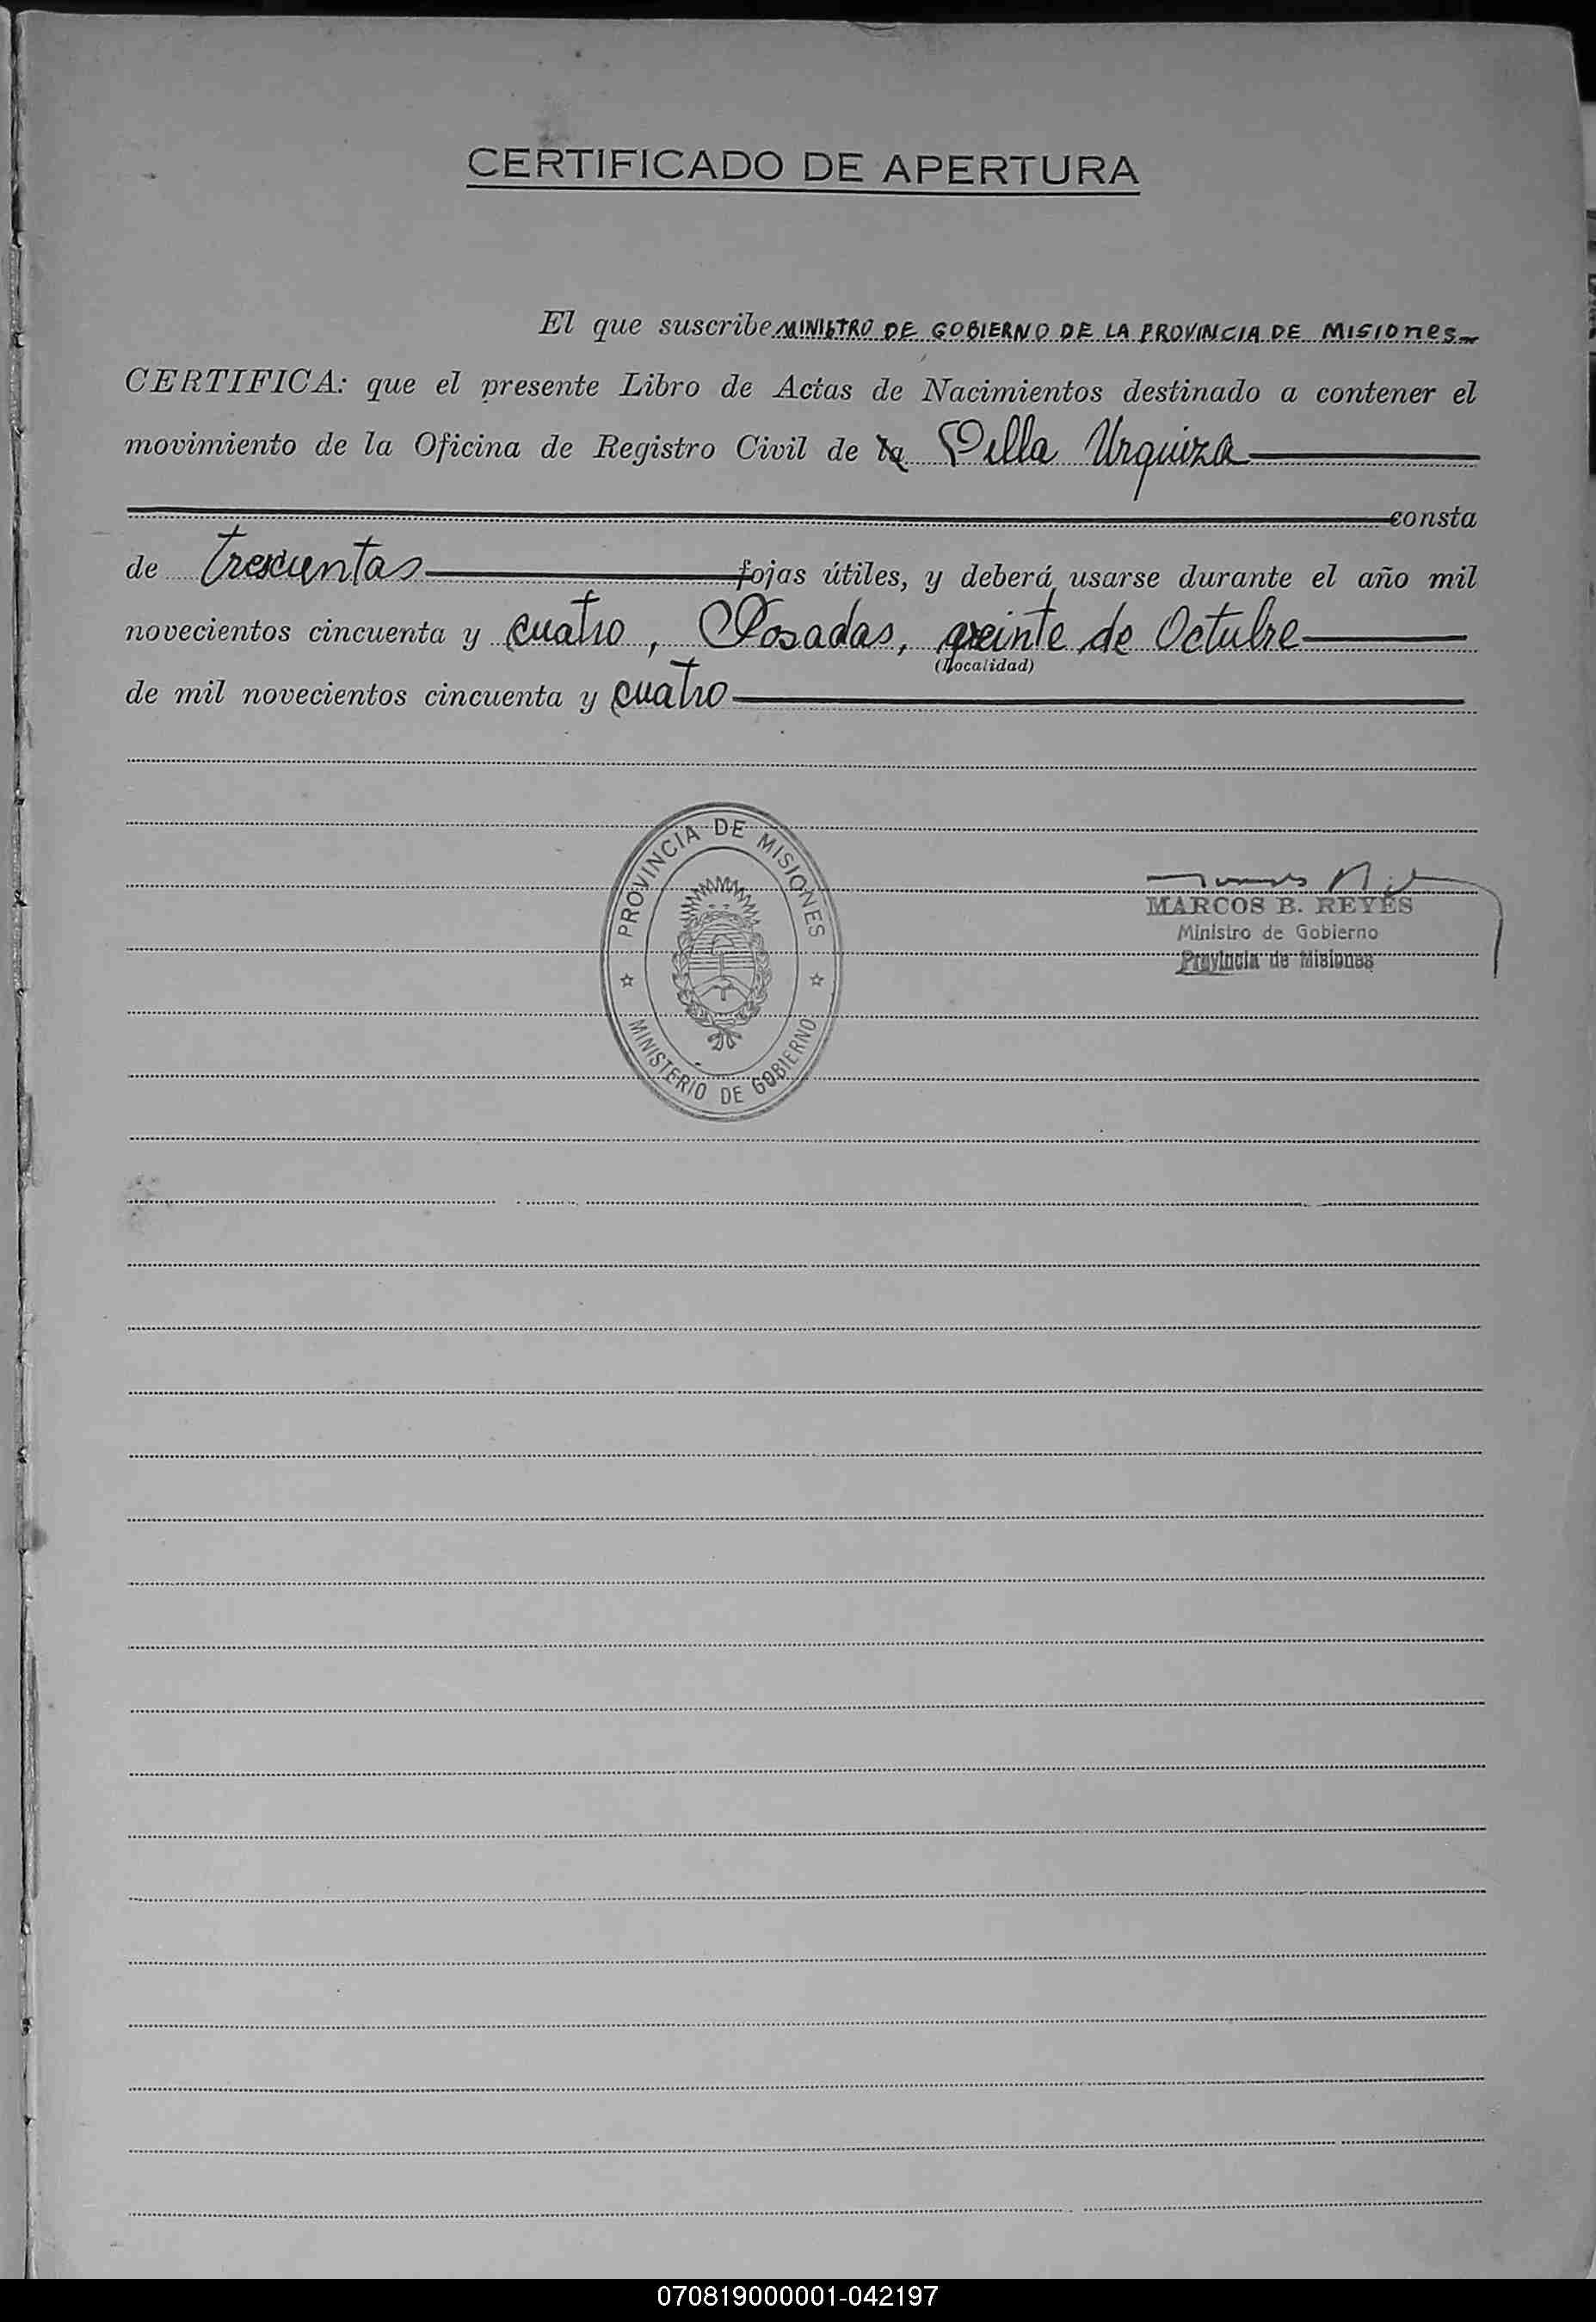 CERTIFICADO DE APERTURA
El que suscribe MINISTRO DE GOBIERNO DE LA PROVINCIA DE MISIONES
CERTIFICA: que el presente Libro de Actas de Nacimientos destinado a contener el
movimiento de la Oficina de Registro Civil de la Villa Urquiza
consta
de Trescientas fojas útiles, y deberá usarse durante el año mil
novecientos cincuenta y cuatro, Posadas, veinte de Octubre
(Localidad)
de mil novecientos cincuenta y cuatro
PROVINCIA DE MISIONES
MINISTERIO DE GOBIERNO
MARCOS B. REYES
Ministro de Gobierno
Provincia de Misiones
070819000001-042197